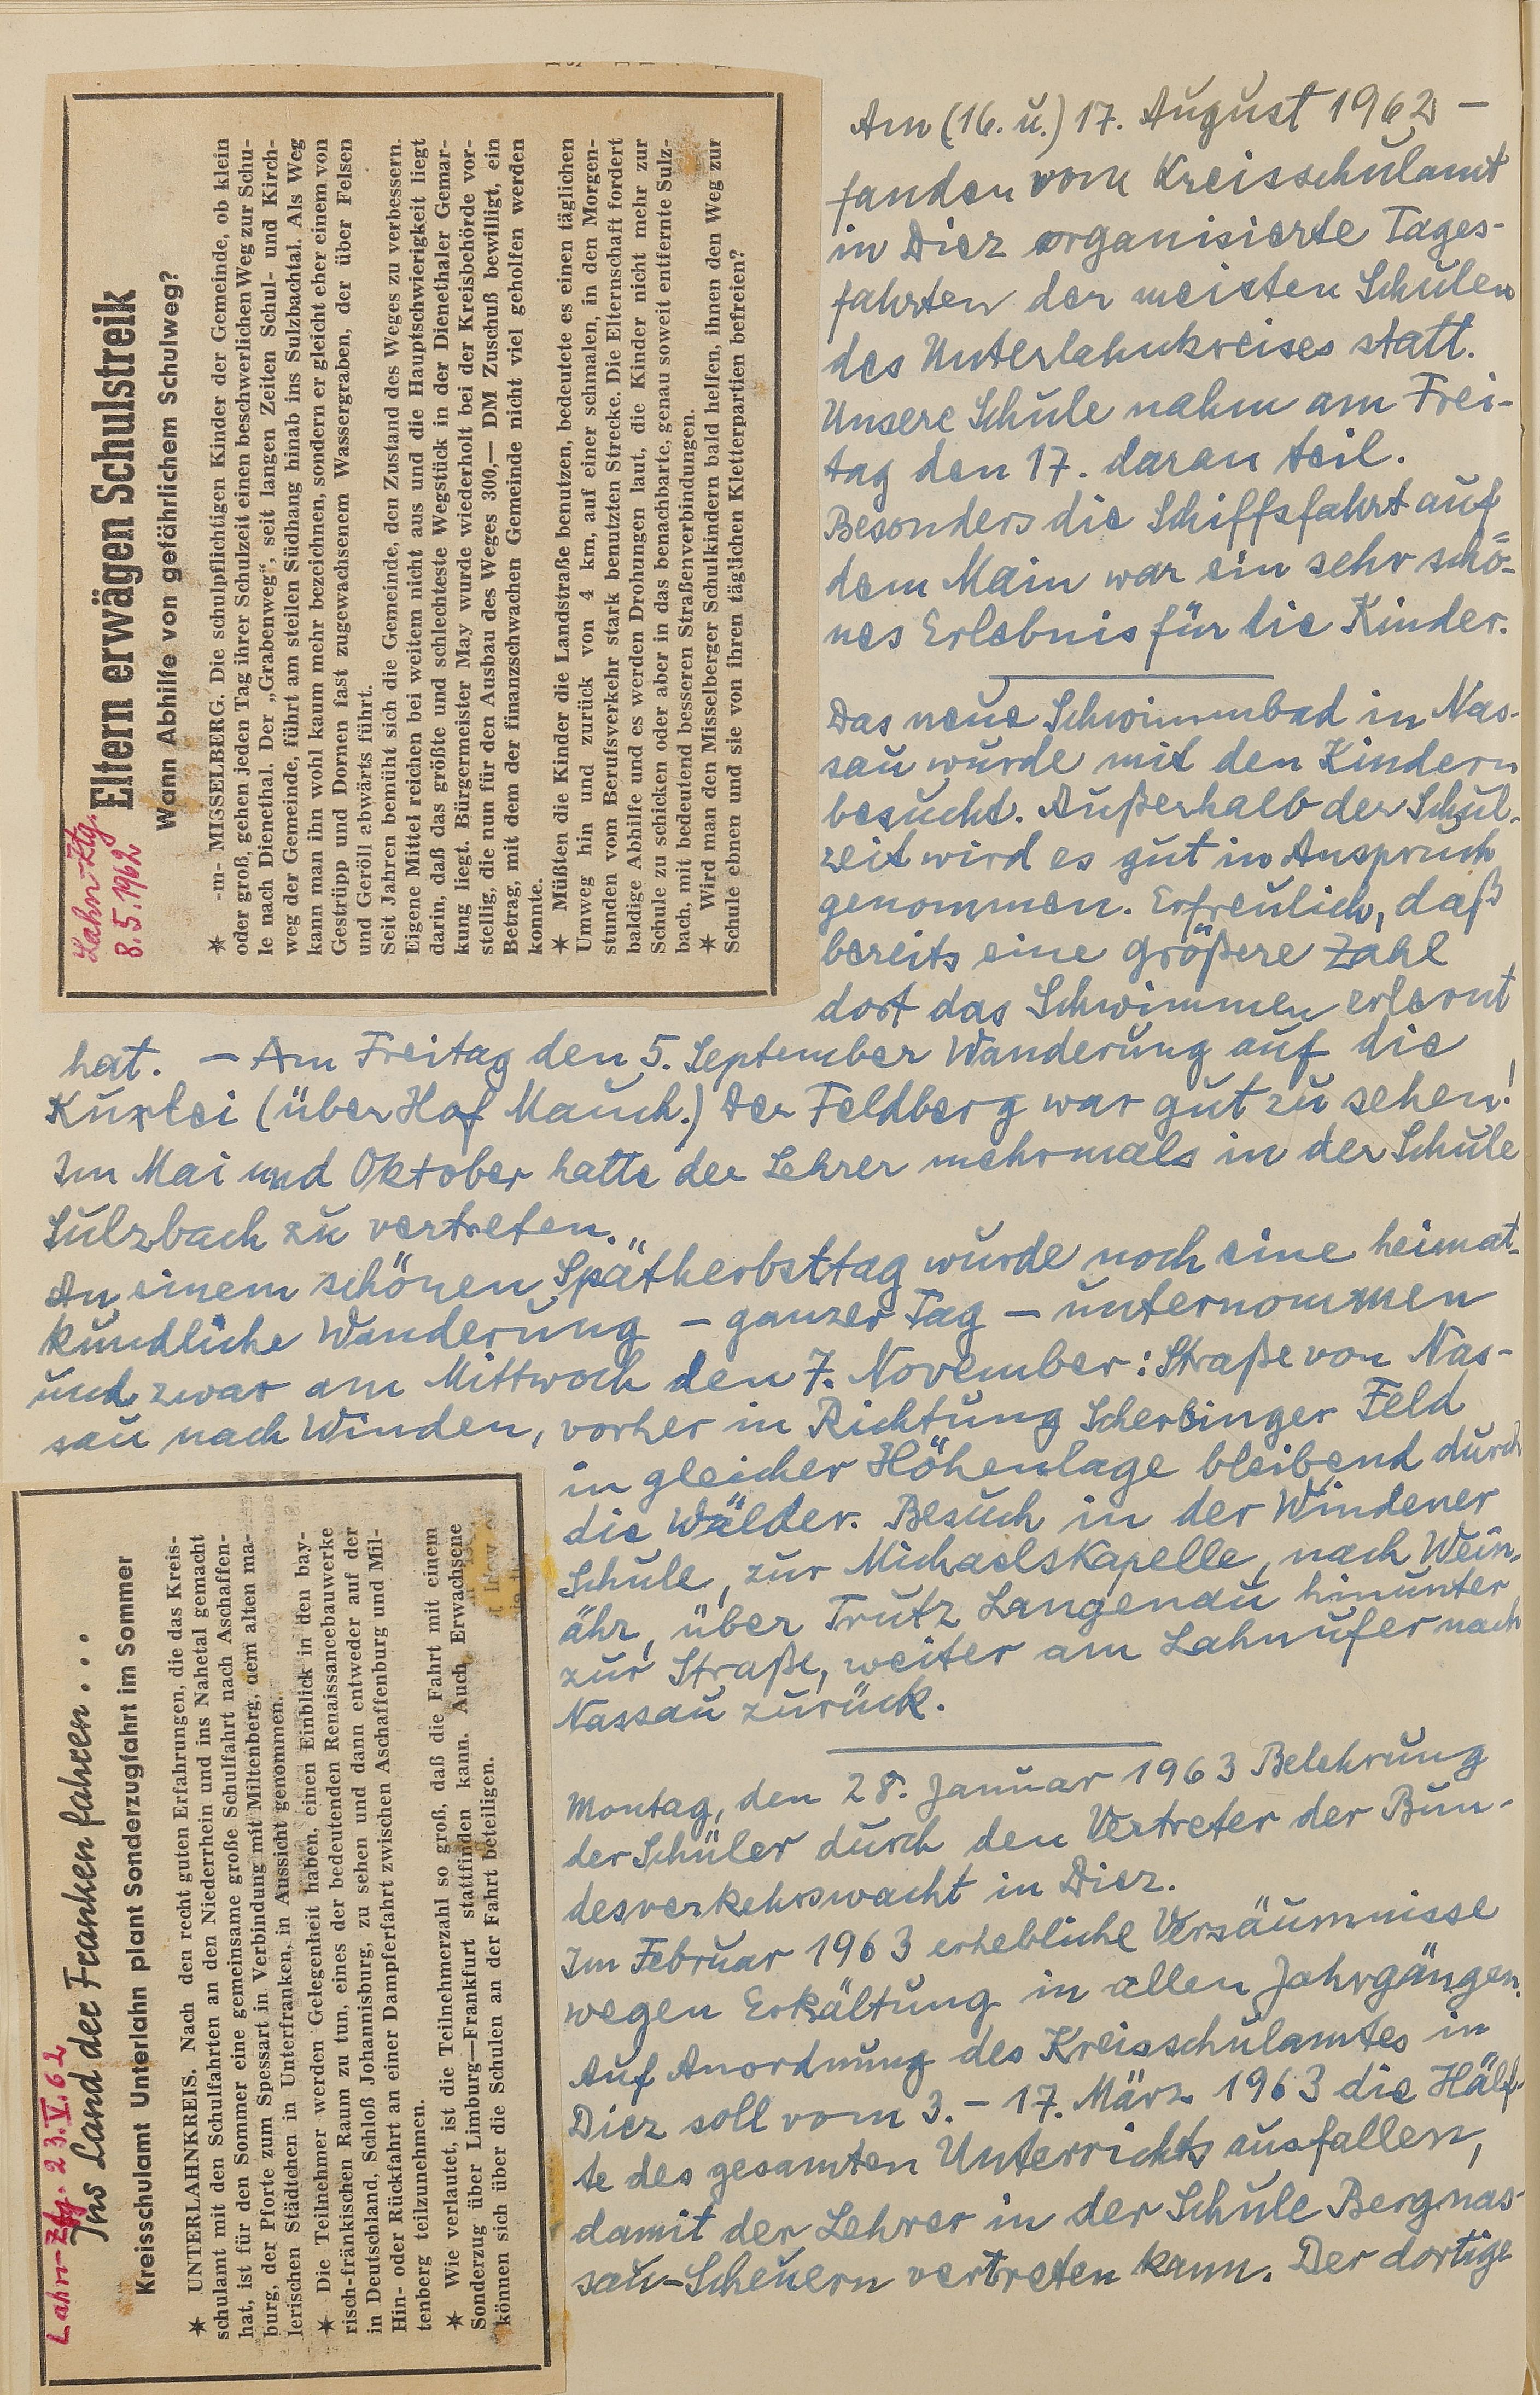 Lahn-Ztg.
8.5.1962
Eltern erwägen Schulstreik
Wann Abhilfe von gefährlichem Schulweg?
✶ -m- MISSELBERG. Die schulpflichtigen Kinder der Gemeinde, ob klein
oder groß, gehen jeden Tag ihrer Schulzeit einen beschwerlichen Weg zur Schu-
le nach Dienethal. Der „Grabenweg“, seit langen Zeiten Schul- und Kirch-
weg der Gemeinde, führt am steilen Südhang hinab ins Sulzbachtal. Als Weg
kann man ihn wohl kaum mehr bezeichnen, sondern er gleicht eher einem von
Gestrüpp und Dornen fast zugewachsenem Wassergraben, der über Felsen
und Geröll abwärts führt.
Seit Jahren bemüht sich die Gemeinde, den Zustand des Weges zu verbessern.
Eigene Mittel reichen bei weitem nicht aus und die Hauptschwierigkeit liegt
darin, daß das größte und schlechteste Wegstück in der Dienethaler Gemar-
kung liegt. Bürgermeister May wurde wiederholt bei der Kreisbehörde vor-
stellig, die nun für den Ausbau des Weges 300,— DM Zuschuß bewilligt, ein
Betrag, mit dem der finanzschwachen Gemeinde nicht viel geholfen werden
konnte.
✶ Müßten die Kinder die Landstraße benutzen, bedeutete es einen täglichen
Umweg hin und zurück von 4 km, auf einer schmalen, in den Morgen-
stunden vom Berufsverkehr stark benutzten Strecke. Die Elternschaft fordert
baldige Abhilfe und es werden Drohungen laut, die Kinder nicht mehr zur
Schule zu schicken oder aber in das benachbarte, genau soweit entfernte Sulz-
bach, mit bedeutend besseren Straßenverbindungen.
✶ Wird man den Misselberger Schulkindern bald helfen, ihnen den Weg zur
Schule ebnen und sie von ihren täglichen Kletterpartien befreien?
Am (16. u.) 17. August 1962 –
fanden vom Kreisschulamt
in Diez organisierte Tages-
fahrten der meisten Schulen
des Unterlahnkreises statt.
Unsere Schule nahm am Frei-
tag den 17. daran teil.
Besonders die Schiffsfahrt auf
dem Main war ein sehr schö-
nes Erlebnis für die Kinder.
Das neue Schwimmbad in Nas-
sau wurde mit den Kindern
besucht. Außerhalb der Schul-
zeit wird es gut in Anspruch
genommen. Erfreulich, daß
bereits eine größere Zahl
dort das Schwimmen erlernt
hat. – Am Freitag den 5. September Wanderung auf die
Kuxlei (über Hof Mauch.) Der Feldberg war gut zu sehen!
Im Mai und Oktober hatte der Lehrer mehrmals in der Schule
Sulzbach zu vertreten.
An einem schönen Spätherbsttag wurde noch eine heimat-
kundliche Wanderung – ganzer Tag – unternommen
und zwar am Mittwoch den 7. November: Straße von Nas-
sau nach Winden, vorher in Richtung Feld
in gleicher Höhenlage bleibend durch
die Wälder. Besuch in der Windener
Schule, zur Michaelskapelle, nach Wein-
ähr, über Trutz Langenau hinunter
zur Straße, weiter am Lahnufer nach
Nassau zurück.
Montag, den 28. Januar 1963 Belehrung
der Schüler durch den Vertreter der Bun-
desverkehrswacht in Diez.
Im Februar 1963 erhebliche Versäumnisse
wegen Erkältung in allen Jahrgängen.
Auf Anordnung des Kreisschulamtes in
Diez soll vom 3. – 17. März 1963 die Hälf-
te des gesamten Unterrichts ausfallen,
damit der Lehrer in der Schule Bergnas-
sau-Scheuern vertreten kann. Der dortige
Lahn-Ztg. 23.V.62
Ins Land der Franken fahren . . .
Kreisschulamt Unterlahn plant Sonderzugfahrt im Sommer
✶ UNTERLAHNKREIS. Nach den recht guten Erfahrungen, die das Kreis-
schulamt mit den Schulfahrten an den Niederrhein und ins Nahetal gemacht
hat, ist für den Sommer eine gemeinsame große Schulfahrt nach Aschaffen-
burg, der Pforte zum Spessart in Verbindung mit Miltenberg, dem alten ma-
lerischen Städtchen in Unterfranken, in Aussicht genommen.
✶ Die Teilnehmer werden Gelegenheit haben, einen Einblick in den bay-
risch-fränkischen Raum zu tun, eines der bedeutenden Renaissancebauwerke
in Deutschland, Schloß Johannisburg, zu sehen und dann entweder auf der
Hin- oder Rückfahrt an einer Dampferfahrt zwischen Aschaffenburg und Mil-
tenberg teilzunehmen.
✶ Wie verlautet, ist die Teilnehmerzahl so groß, daß die Fahrt mit einem
Sonderzug über Limburg—Frankfurt stattfinden kann. Auch Erwachsene
können sich über die Schulen an der Fahrt beteiligen.